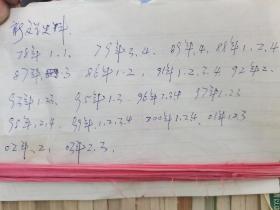 新文学史料
78年1.1. 79年3.4. 89年.4. 88年1.2.4
87年3 86年1.2. 91年1.2.3.4 92年2.
93年1.23. 95年1.3. 96年1.3.4 97年1.23
95年.2.4. 99年1.2.3.4 200年1.2.4. 01年1.23
02年.2. 03年2.3.